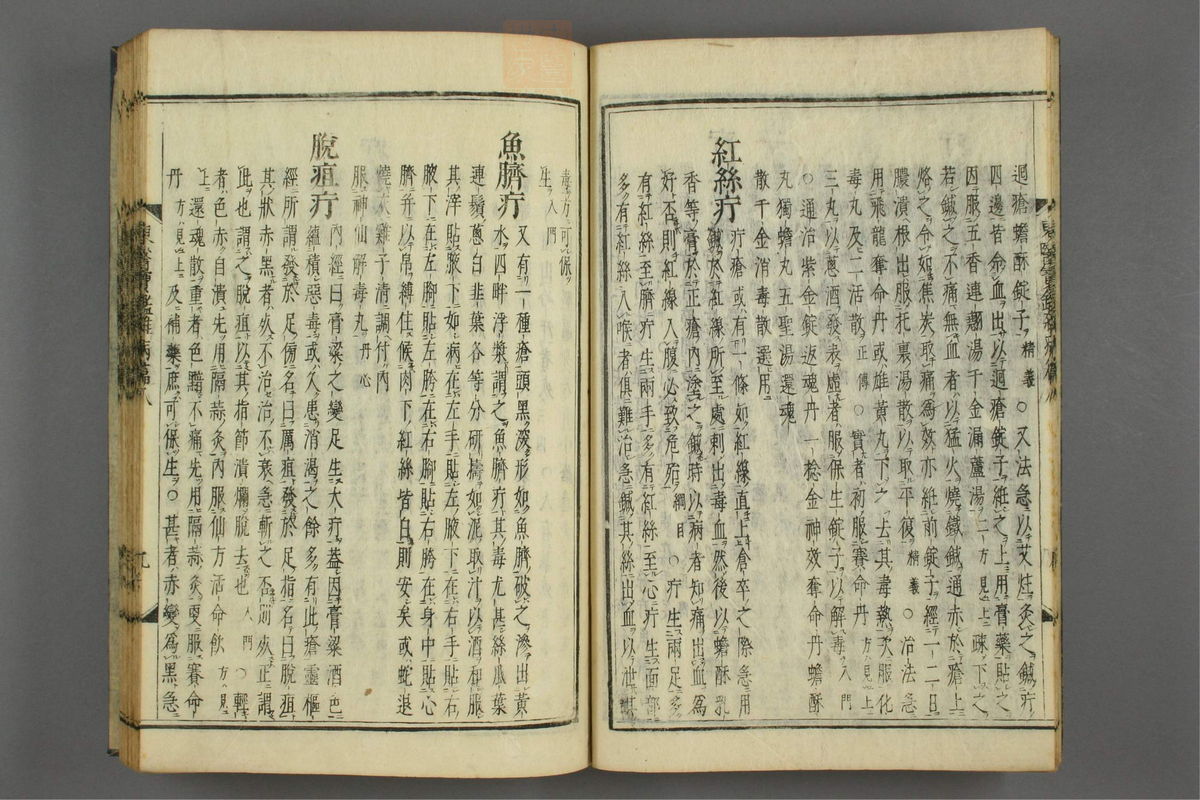 廻瘡蟾酥錠子精義○又法急以艾炷灸之鍼疔
四邊皆令血出以廻瘡錠子紙之上用膏藥貼之
因服五香連翹湯千金漏蘆湯二方見上疎下之
若鍼之不痛無血者以猛火燒鐵鍼通赤於瘡上
烙之令如焦炭取痛爲效亦紙前錠子經一二日
膿潰根出服托裏湯散以取平復精義○治法急
用飛龍奪命丹或雄黃丸下之去其毒熱次服化
毒丸及二活散正傳○實者初服賽命丹方見上
三丸以葱酒發表虛者服保生錠子以解毒入門
○通治紫金錠返魂丹一捻金神效奪命丹蟾酥
丸獨蟾丸五聖湯還魂
散千金消毒散選用
紅絲疔 疔瘡或有一條如紅線直上倉卒之際急用
鍼於紅線所至處刺出毒血然後以蟾酥乳
香等膏於正瘡內塗之鍼時以病者知痛出血爲
好否則紅線入腹必致危殆綱目○疔生兩足多
有紅絲至臍疔生兩手多有紅絲至心疔生面部
多有紅絲入喉者俱難治急鍼其絲出血以泄其
毒方可保
生入門
魚臍疔 又有一種瘡頭黑深形如魚臍破之滲出黃
水四畔浮漿謂之魚臍疔其毒尤甚絲瓜葉
連鬚葱白韭葉各等分研擣如泥取汁以酒和服
其滓貼腋下如病在左手貼左腋下在右手貼右
腋下在左脚貼左胯在右脚貼右胯在身中貼心
臍幷以帛縛住候肉下紅絲皆白則安矣或蛇退
燒灰雞子淸調付內
服神仙解毒丸丹心
脫疽疔 內經曰膏粱之變足生大疔盖因膏粱酒色
蘊積惡毒或久患消渴之餘多有此瘡靈樞
經所謂發於足傍名曰厲疽發於足指名曰脫疽
其狀赤黑者死不治不衰急斬之否則死正謂
此也謂之脫疽以其指節潰爛脫去也入門○輕
者色赤自潰先用隔蒜灸內服仙方活命飮方見
上還魂散重者色黯不痛先用隔蒜灸更服賽命
丹方見上及補藥庶可保生○甚者赤變爲黑急